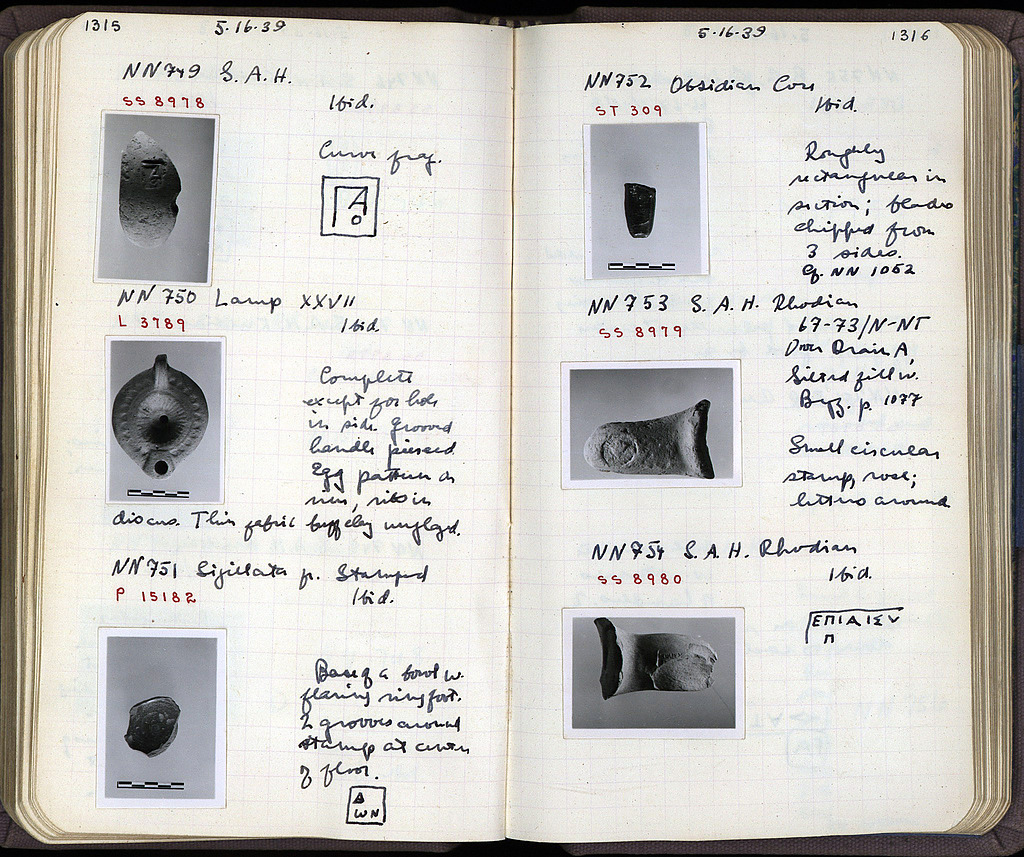 1315
5·16·39
NN749 S. A. H.
SS 8978
Ibid.
Curve frag.
ΠΑ
Ο
NN 750 Lamp XXVII
L 3789
Ibid.
Complete
except for hole
in side. Grooved
handle pierced
Egg pattern on
rim, ribs in
discus. Thin fabric buff clay unglazed.
NN751 Sigillata p. Stamped
P 15182
Ibid.
Base of a bowl w.
flaring ring foot.
2 grooves around
stamp at center
of floor.
Δ
ωΝ
5·16·39
1316
NN752 Obsidian Core
ST 309
Ibid.
Roughly
rectangular in
section; blades
chipped from
3 sides.
Cf. NN 1052
NN 753 S. A. H. Rhodian
SS 8979
67-73/Ν-ΝΤ
Over Drain A,
Silted fill w.
Byz. p. 1077
Small circular
stamp, rose;
letters around
NN754 S. A. H. Rhodian
SS 8980
Ibid.
ΕΠΙΑΙΣΥ
Π